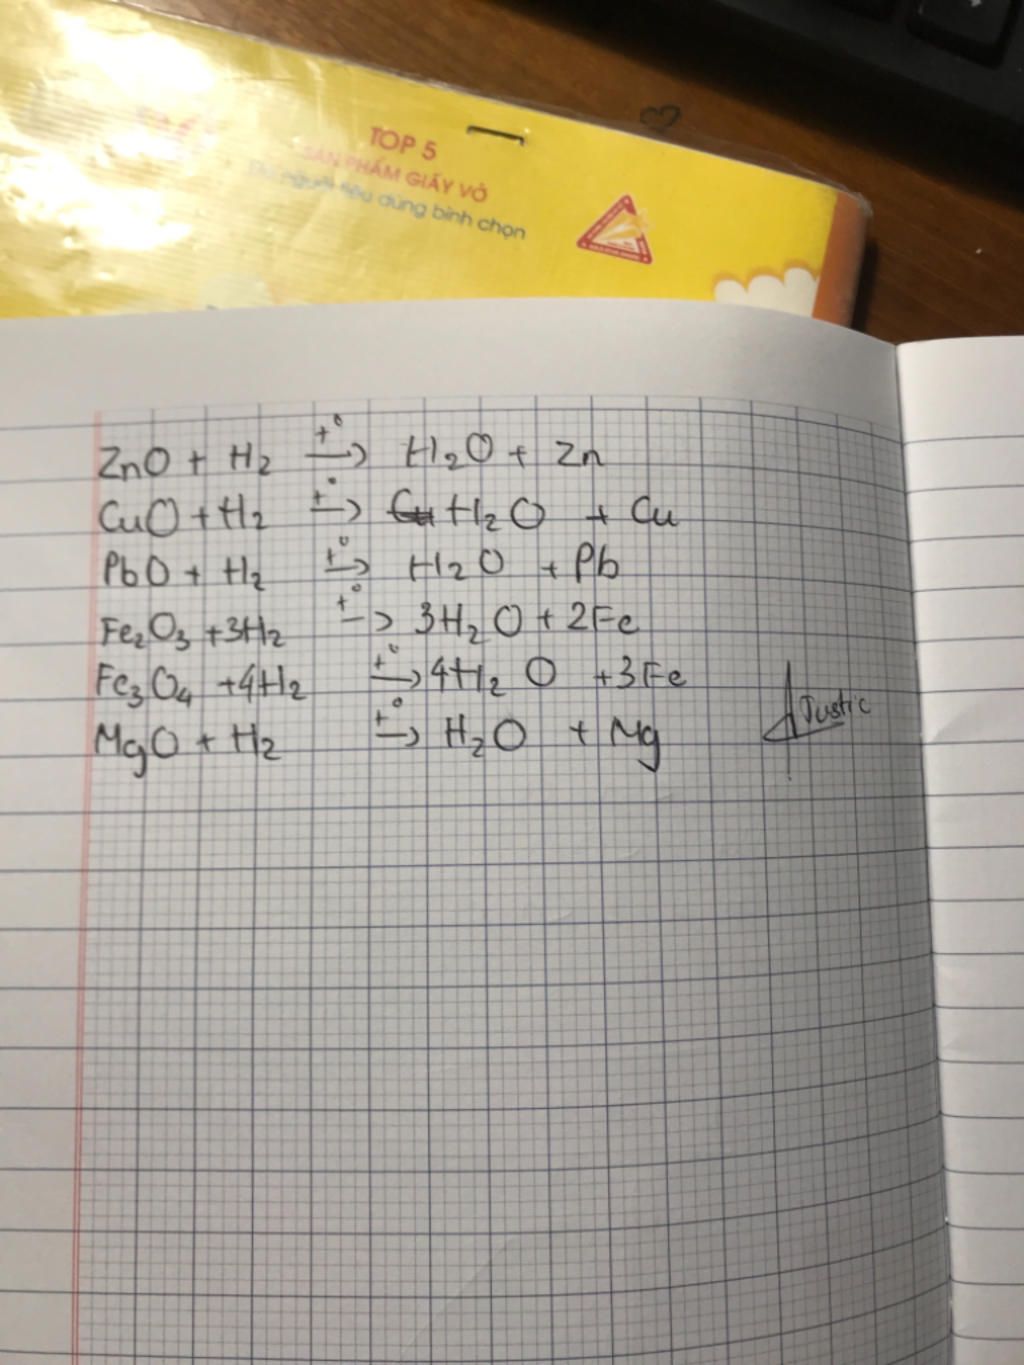 TOP 5
SẢN PHẨM GIẤY VỞ
người tiêu dùng bình chọn
ZnO + H₂ →(t°) H₂O + Zn
CuO + H₂ →(t°) H₂O + Cu
PbO + H₂ →(t°) H₂O + Pb
Fe₂O₃ + 3H₂ →(t°) 3H₂O + 2Fe
Fe₃O₄ + 4H₂ →(t°) 4H₂O + 3Fe
MgO + H₂ →(t°) H₂O + Mg
Justic